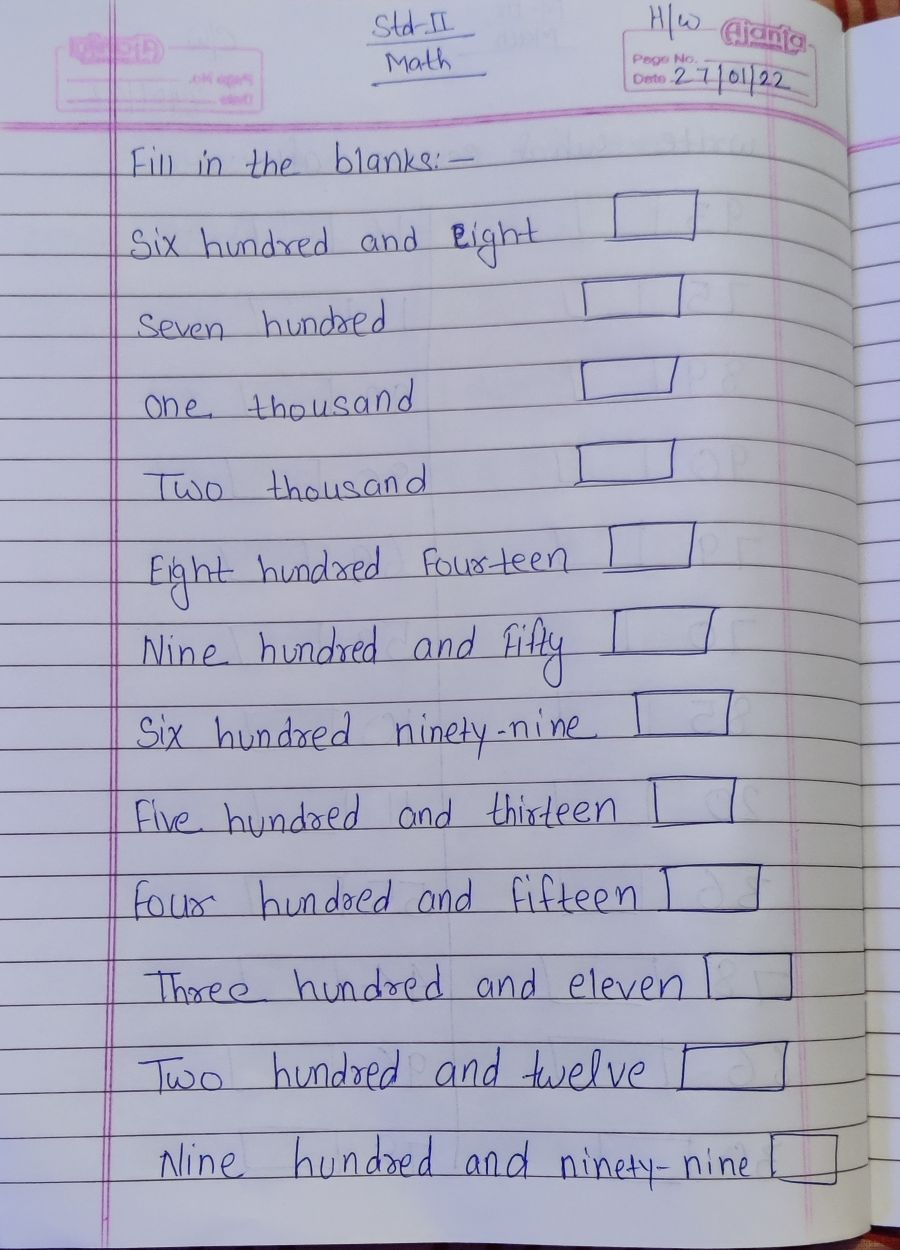 Std-II
Math
H/W
Ajanta
Page No.
Date 27/01/22
Fill in the blanks:-
Six hundred and eight
Seven hundred
One thousand
Two thousand
Eight hundred fourteen
Nine hundred and fifty
Six hundred ninety-nine
Five hundred and thirteen
Four hundred and fifteen
Three hundred and eleven
Two hundred and twelve
Nine hundred and ninety-nine